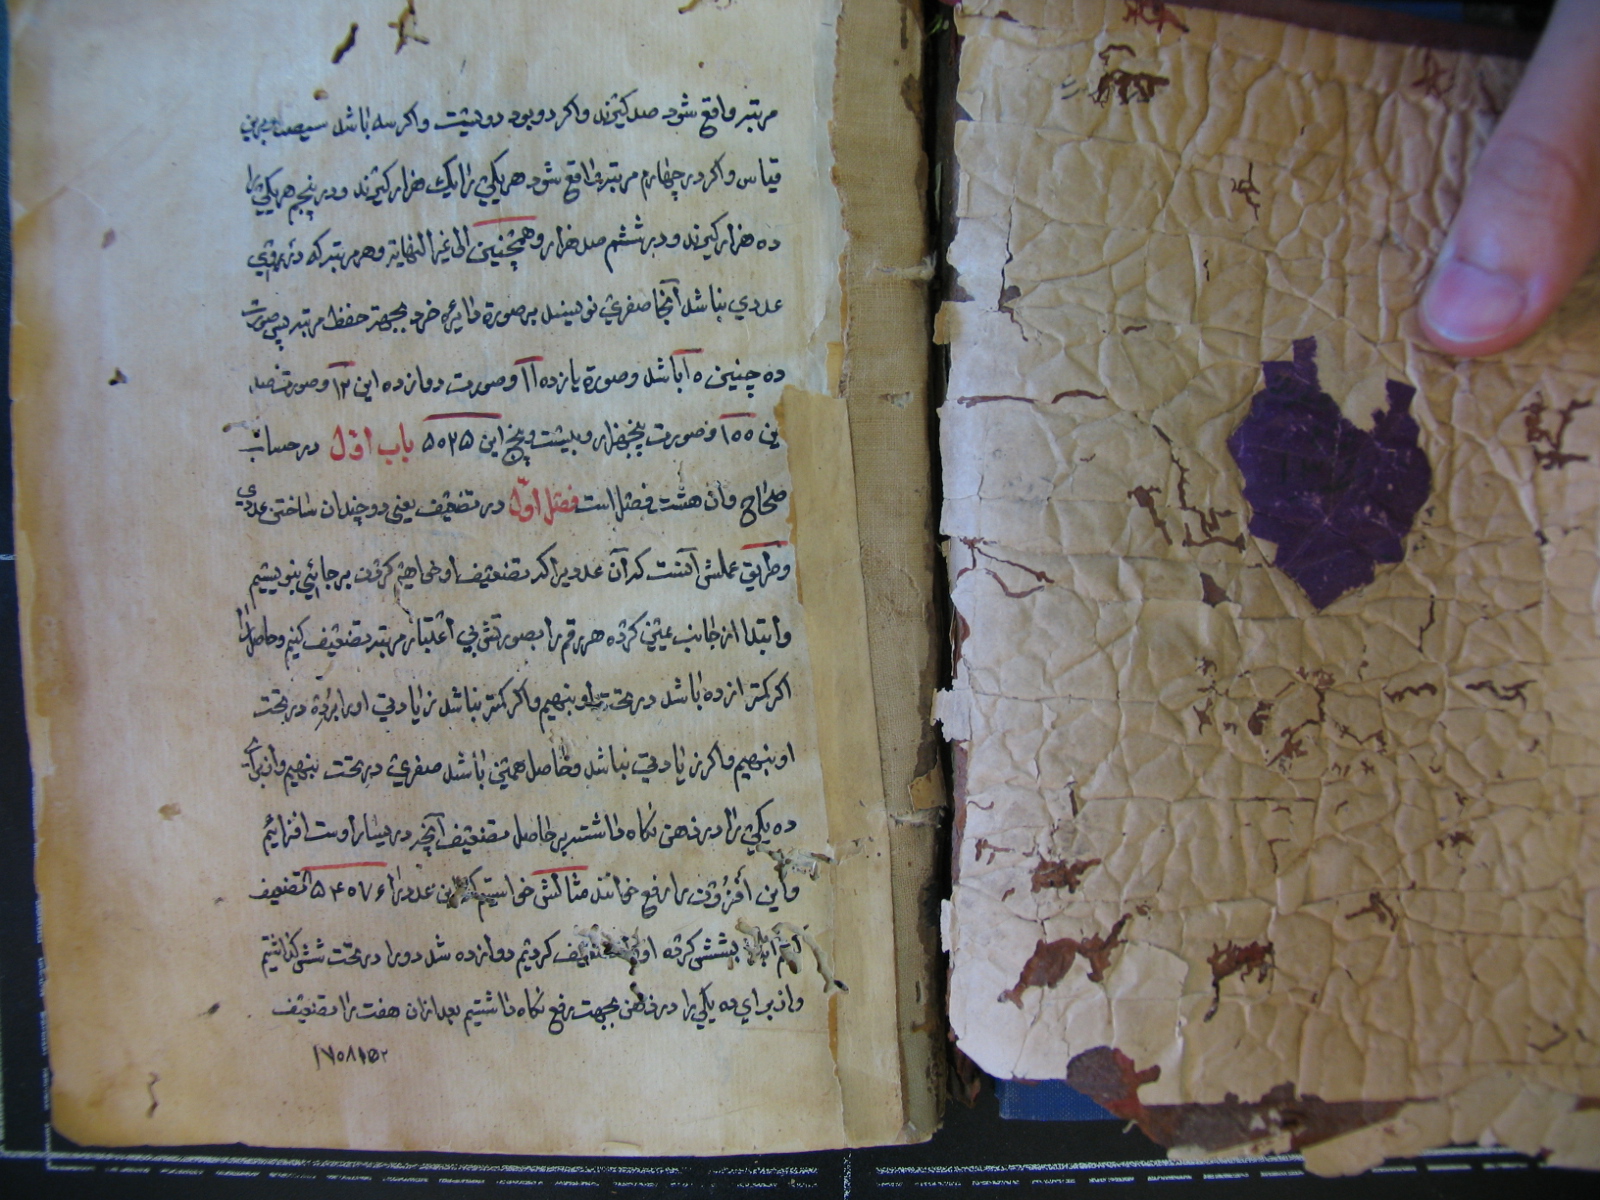 مرتبه واقع شود صد کیرند واکر دو بود دویست واکر سه باشد سیصد برین
قیاس واکر در چهارم مرتبه واقع شود هر یکی را یک هزار کیرند ودر پنجم هر یکی را
ده هزار کیرند ودر ششم صد هزار وهمچنین الی غیر النهایه وهر مرتبه که در وی
عددی نباشد آنجا صفری نویسند بر صورة دایره خرد بجهة حفظ مرتبه پس صورت
ده چنین ۱۵ باشد وصورة یازده ۱۱ وصورت دوازده این ۱۲ وصورت صد
این ۱۵۵ وصورت پنجهزار وبیست وپنج این ۵۵۲۵ باب اوّل در حساب
صحاح وان هشت فصل است فصل اوّل در تضعیف یعنی دو چندان ساختن عددی
وطریق عملش آنست که آن عدد یرا که تضعیف او خواهیم کردن بر جائی بنویسیم
وابتدا از جانب یمین کرده هر رقم را بصورتش بی اعتبار مرتبه تضعیف کنیم وحاصل را
اکر کمتر از ده باشد در تحت او بنهیم واکر کمتر نباشد زیادتی او را بر ده در تحت
او بنهیم واکر زیادتی نباشد وحاصل همین باشد صفری در تحت بنهیم وان برای
ده یکی را در ذهن نکاه داشته بر حاصل تضعیف آنچه در یسار اوست افزائیم
واین افزودن را رفع خوانند مثالش خواستیم که این عدد را ۵۴۵۷۶ تضعیف
بشش کرده او را تضعیف کردیم دوازده شد دو را در تحت شش کذاشتیم
واز برای ده یکی را در ذهن بجهت رفع نکاه داشتیم بعد ازان هفت را تضعیف